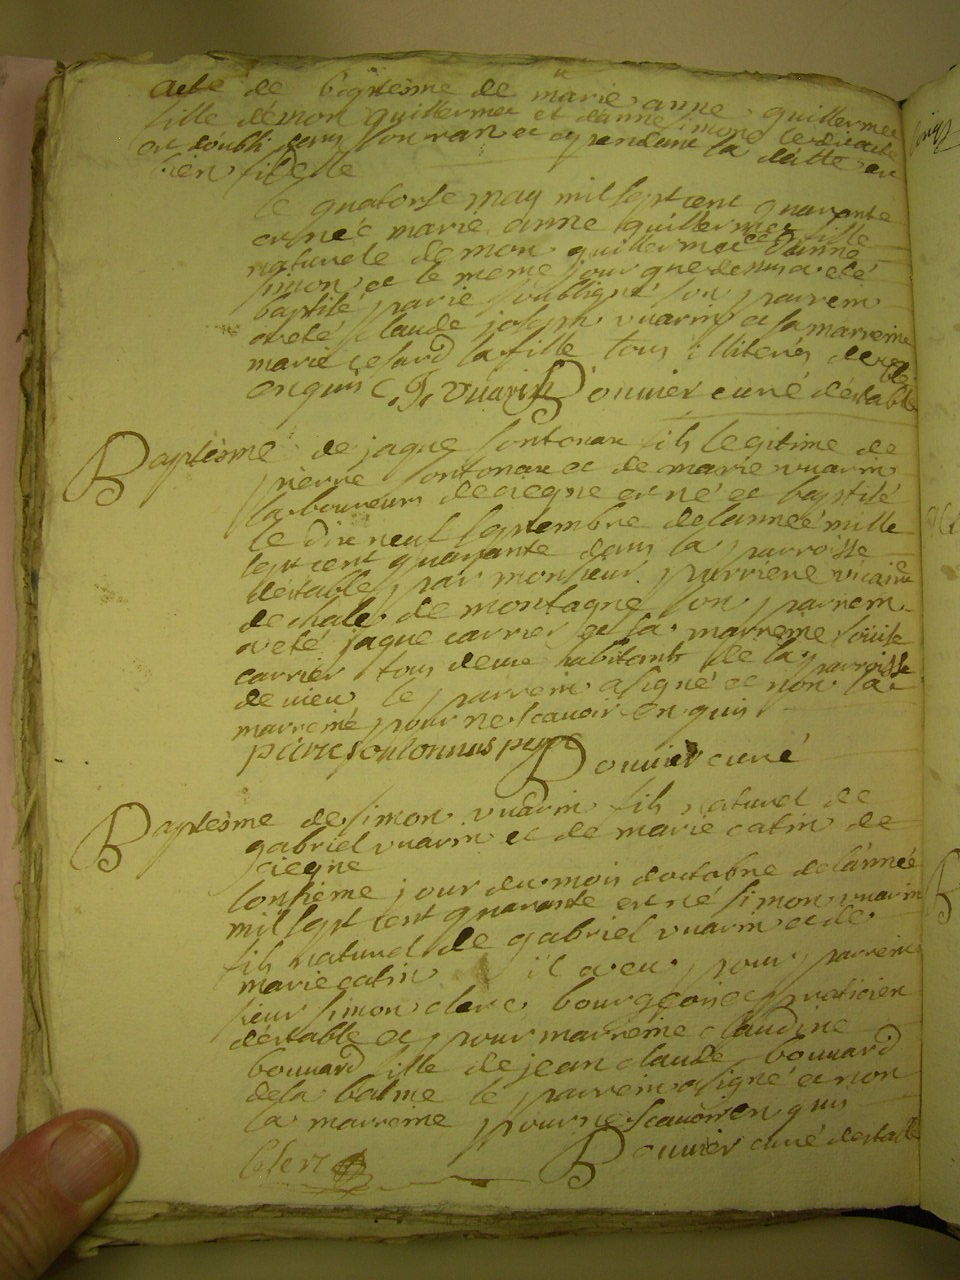 acte de baptesme de marie anne guillermet
fille démon guillermet et danne simond le dit acte
est doubli dans son ran et cependant la datte en
bien fidelle
le quatorse may mil sept cent quarante
est née marie anne guillermet fille
naturele demon guillermet et danne
simon et le meme jour que dessus a eté
baptisé par ie soubsigné son parrein
a eté claude joseph vuarin et la marreine
marie cesard la fille tous illiterés de ce
enquis C. J. vuarin Bouvier curé destable
Baptesme de jaque sontonax fils legitime de
pierre sontonax et de marie vuarin
laboureurs de ciegne est né et baptisé
le dix neuf septembre de lanneé mille
sept cent quarante dans la parroisse
destable par monsieur perriere vicaire
de chale de montagne son parrein
a eté jaque carrier et la marreine louise
carrier tous deux habitants de la parroisse
de vieu le parrein a signé et non la
marreine pour ne scavoir enquis
pierre soutonnas pere
Bouvier curé
Baptesme de simon vuarin fils naturel de
gabriel vuarin et de marie catin de
ciegne
lonsieme jour du mois doctobre de lánneé
mil sept cent quarante est né simon vuarin
fils naturel de gabriel vuarin et de
marie catin il a eu pour parrein
sieur simon clerc bourgeois et praticien
déstable et pour marreine claudine
bouvard fille de jean claude bouvard
de la balme le parrein a signé et non
la marreine pour ne scavoir enquis
Clerc Bouvier curé destable